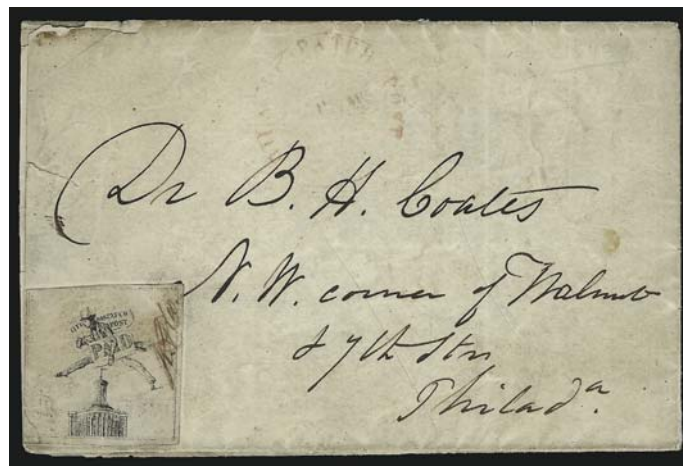 PATCH
Dr B. H. Coates
N. W. corner of Walnut
& 7th Strs
Philada.
CITY DESPATCH
POST
PAID